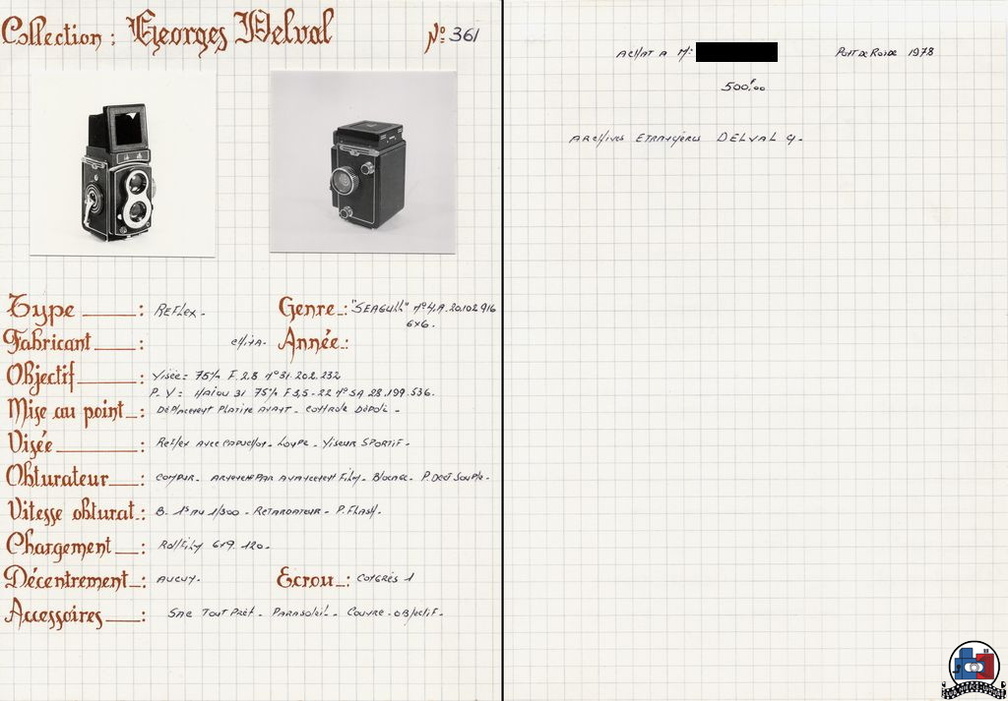 Collection : Georges Delval
N° 361
Type : REFLEX.
Genre : "SEAGULL" N° 4.A. 20.102.916
6x6.
Fabricant : CHINA.
Année :
Objectif : VISÉE : 75% F. 2.8 N° 31.202.232
P. V : HAIOU 31 75% F 3,5-22 N° SA 28.199.536.
Mise au point : DÉPLACEMENT PLATINE AVANT - CONTROLE DÉPOLI -
Visée : REFLEX AVEC CAPUCHON - LOUPE - VISEUR SPORTIF -
Obturateur : COMPUR - ARMEMENT PAR AVANCEMENT FILM - BLOCAGE - P. DECT SOUPLE -
Vitesse obturat. : B. 1S AU 1/300 - RETARDATEUR - P. FLASH.
Chargement : ROLLFILM 6x9 120.
Décentrement : AUCUN.
Ecrou : CONGRÈS 1
Accessoires : SAC TOUT PRÊT - PARASOLEIL - COUVRE-OBJECTIF.
ACHAT A M :
PONT DE ROIDE 1978
500F00
ARCHIVES ETRANGÈRES DELVAL G.